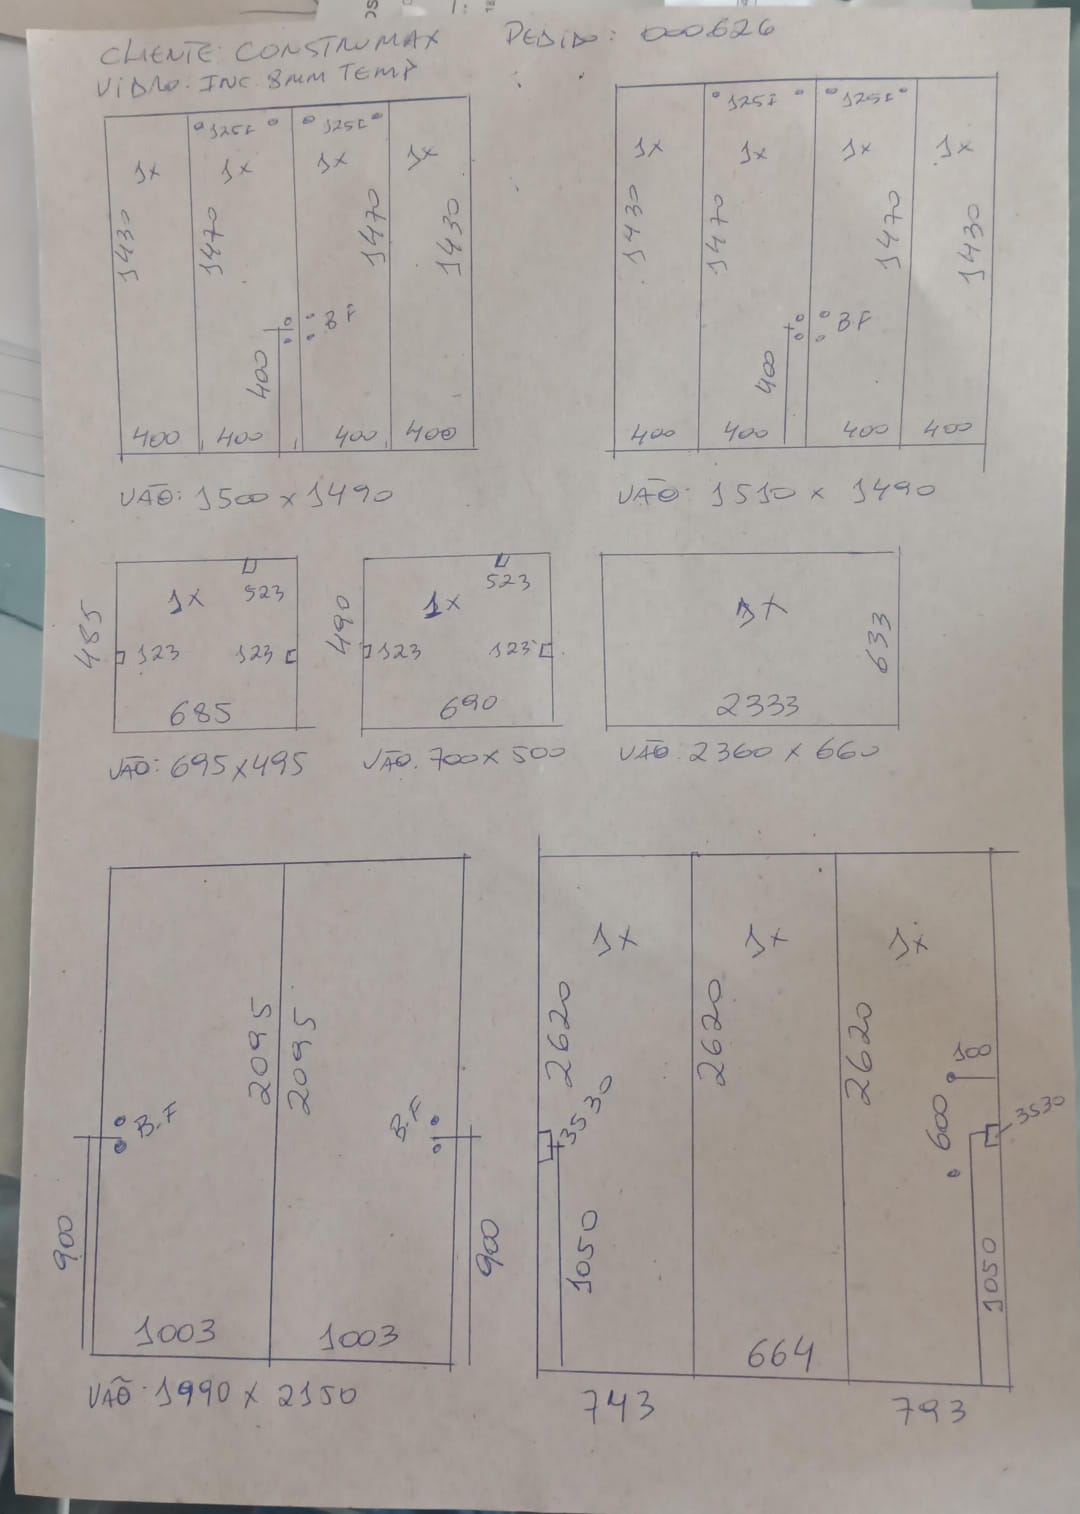 CLIENTE: CONSTRUMAX PEDIDO: 000626
VIDRO: INC 8MM TEMP
125F 125F
1x 1x 1x 1x
1430 1470 1470 1430
B.F
400
400 400 400 400
VÃO: 1500 x 1490
125F 125F
1x 1x 1x 1x
1430 1470 1470 1430
BF
400
400 400 400 400
VÃO: 1510 x 1490
1x 523
485
123 123
685
VÃO: 695x495
523
1x
490
123 123
690
VÃO: 700x500
1x
633
2333
VÃO: 2360 x 660
2095 2095
B.F B.F
900 900
1003 1003
VÃO: 1990 x 2150
1x 1x 1x
2620 2620 2620
100
3530 600 3530
1050 1050
664
743 793